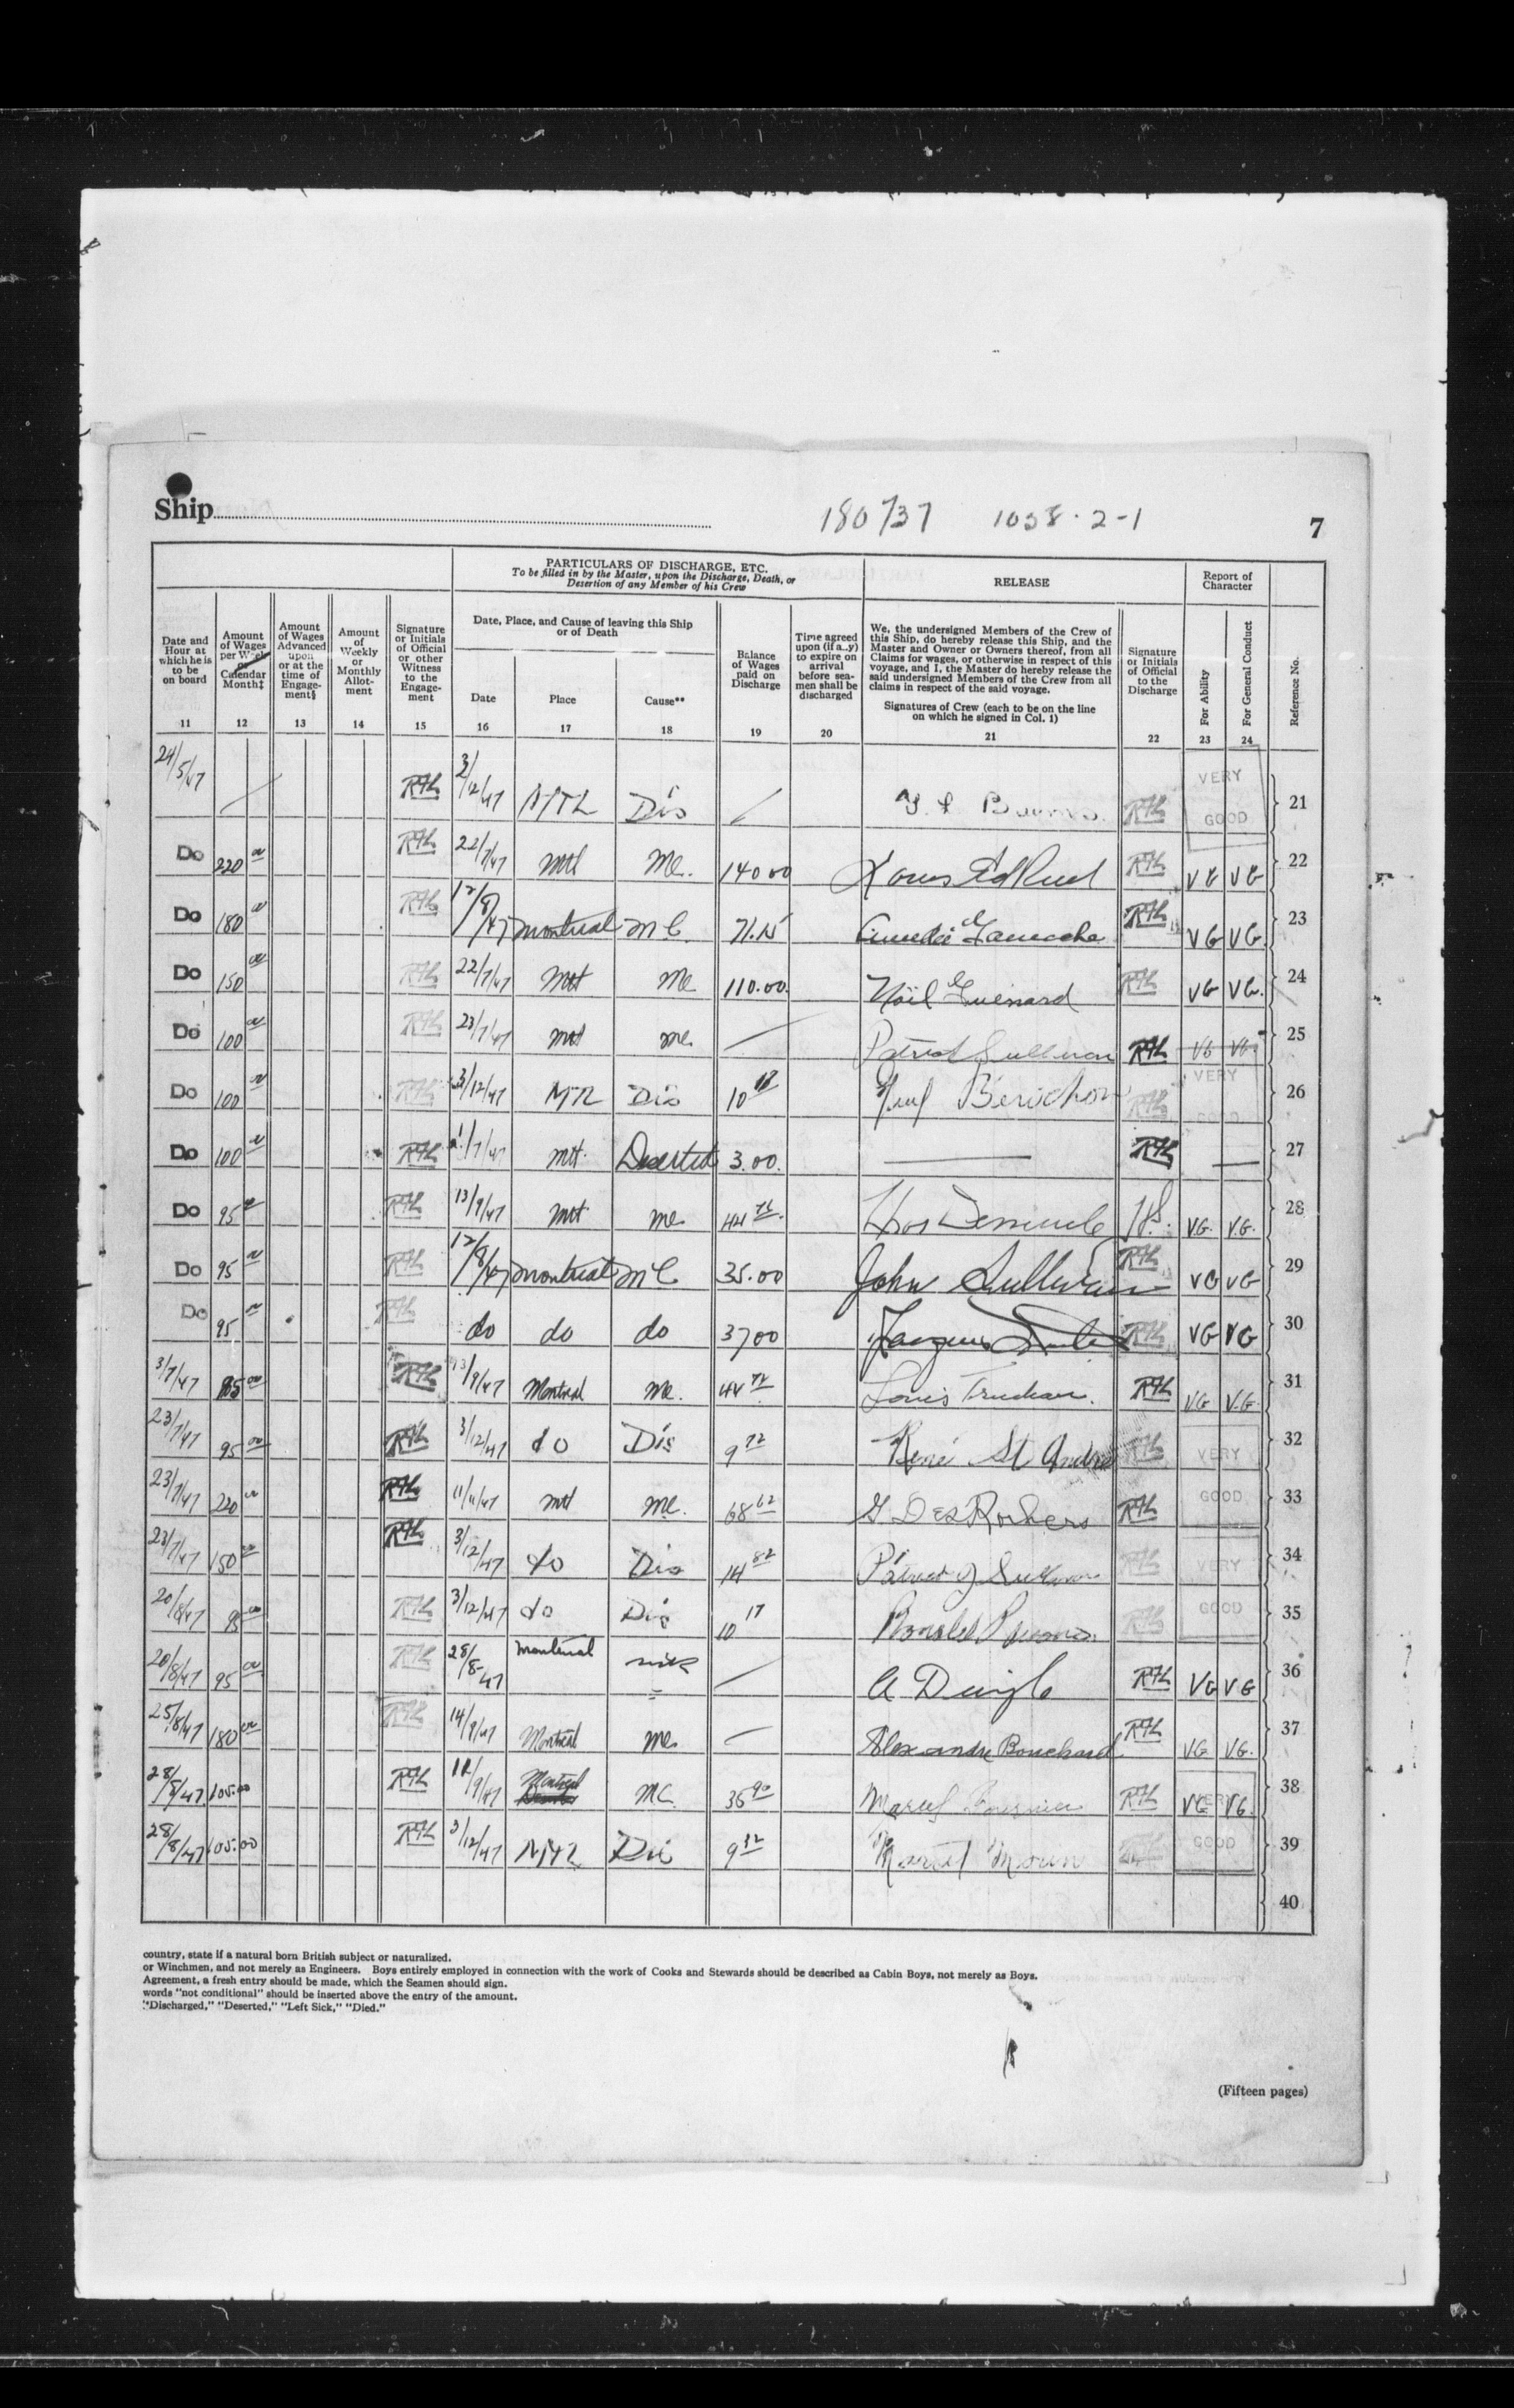 Ship
180737 1038-2-1
7
PARTICULARS OF DISCHARGE, ETC.
To be filled in by the Master, upon the Discharge, Death, or
Desertion of any Member of his Crew
RELEASE
Report of
Character
Date and
Hour at
which he is
to be
on board
Amount
of Wages
per Week
or
Calendar
Month‡
Amount
of Wages
Advanced
upon
or at the
time of
Engage-
ment§
Amount
of
Weekly
or
Monthly
Allot-
ment
Signature
or Initials
of Official
or other
Witness
to the
Engage-
ment
Date, Place, and Cause of leaving this Ship
or of Death
Date
Place
Cause**
Balance
of Wages
paid on
Discharge
Time agreed
upon (if a..y)
to expire on
arrival
before sea-
men shall be
discharged
We, the undersigned Members of the Crew of
this Ship, do hereby release this Ship, and the
Master and Owner or Owners thereof, from all
Claims for wages, or otherwise in respect of this
voyage, and I, the Master do hereby release the
said undersigned Members of the Crew from all
claims in respect of the said voyage.
Signatures of Crew (each to be on the line
on which he signed in Col. 1)
Signature
or Initials
of Official
to the
Discharge
For Ability
For General Conduct
Reference No.
11 12 13 14 15 16 17 18 19 20 21 22 23 24
24/5/47 RHL 3/12/47 MTL Dis RHL VERY GOOD 21
Do 220 00 RHL 22/7/47 Mtl MC. 140 00 RHL VG VG 22
Do 180 00 RHL 12/8/47 Montreal MC 71.15 RHL VG VG 23
Do 150 00 RHL 22/7/47 Mtl MC 110.00 Noël Guenard RHL VG VG. 24
Do 100 00 RHL 23/7/47 Mtl MC Patrick Sullivan RHL VG VG 25
Do 100 00 RHL 3/12/47 MTL Dis 10 Berichon RHL VERY GOOD 26
Do 100 00 RHL /7/47 Mtl Deserted 3.00. RHL 27
Do 95 00 RHL 13/9/47 Mtl MC V.G. V.G. 28
Do 95 00 RHL 12/8/47 Montreal MC 35.00 John Sullivan RHL VG VG 29
Do 95 00 RHL do do do 37 00 Jacques RHL VG VG 30
3/7/47 00 RHL 13/9/47 Montreal MC. Louis Trudeau. RHL VG V.G. 31
23/7/47 95 00 RHL 3/12/47 do Dis 9 72 René St André RHL VERY 32
23/7/47 220 00 RHL 11/11/47 Mtl MC. 68 62 G DesRochers RHL GOOD 33
23/7/47 150 00 RHL 3/12/47 do Dis 14 82 Patrick J Sullivan RHL VERY 34
20/8/47 95 00 RHL 3/12/47 do Dis 10 17 Ronald RHL GOOD 35
20/8/47 95 00 RHL 28/8-47 Montreal sick A RHL VG VG 36
25/8/47 180 00 RHL 14/9/47 Montreal MC Alexandre Bouchard RHL VG VG. 37
28/8/47 105.00 RHL /9/47 Montreal MC. Marcel Fournier RHL VG VG. VERY 38
28/8/47 105.00 RHL 3/12/47 MTL Dis 9 Marcel Morin RHL GOOD 39
40
country, state if a natural born British subject or naturalized.
or Winchmen, and not merely as Engineers. Boys entirely employed in connection with the work of Cooks and Stewards should be described as Cabin Boys, not merely as Boys.
Agreement, a fresh entry should be made, which the Seamen should sign.
words "not conditional" should be inserted above the entry of the amount.
"Discharged," "Deserted," "Left Sick," "Died."
(Fifteen pages)